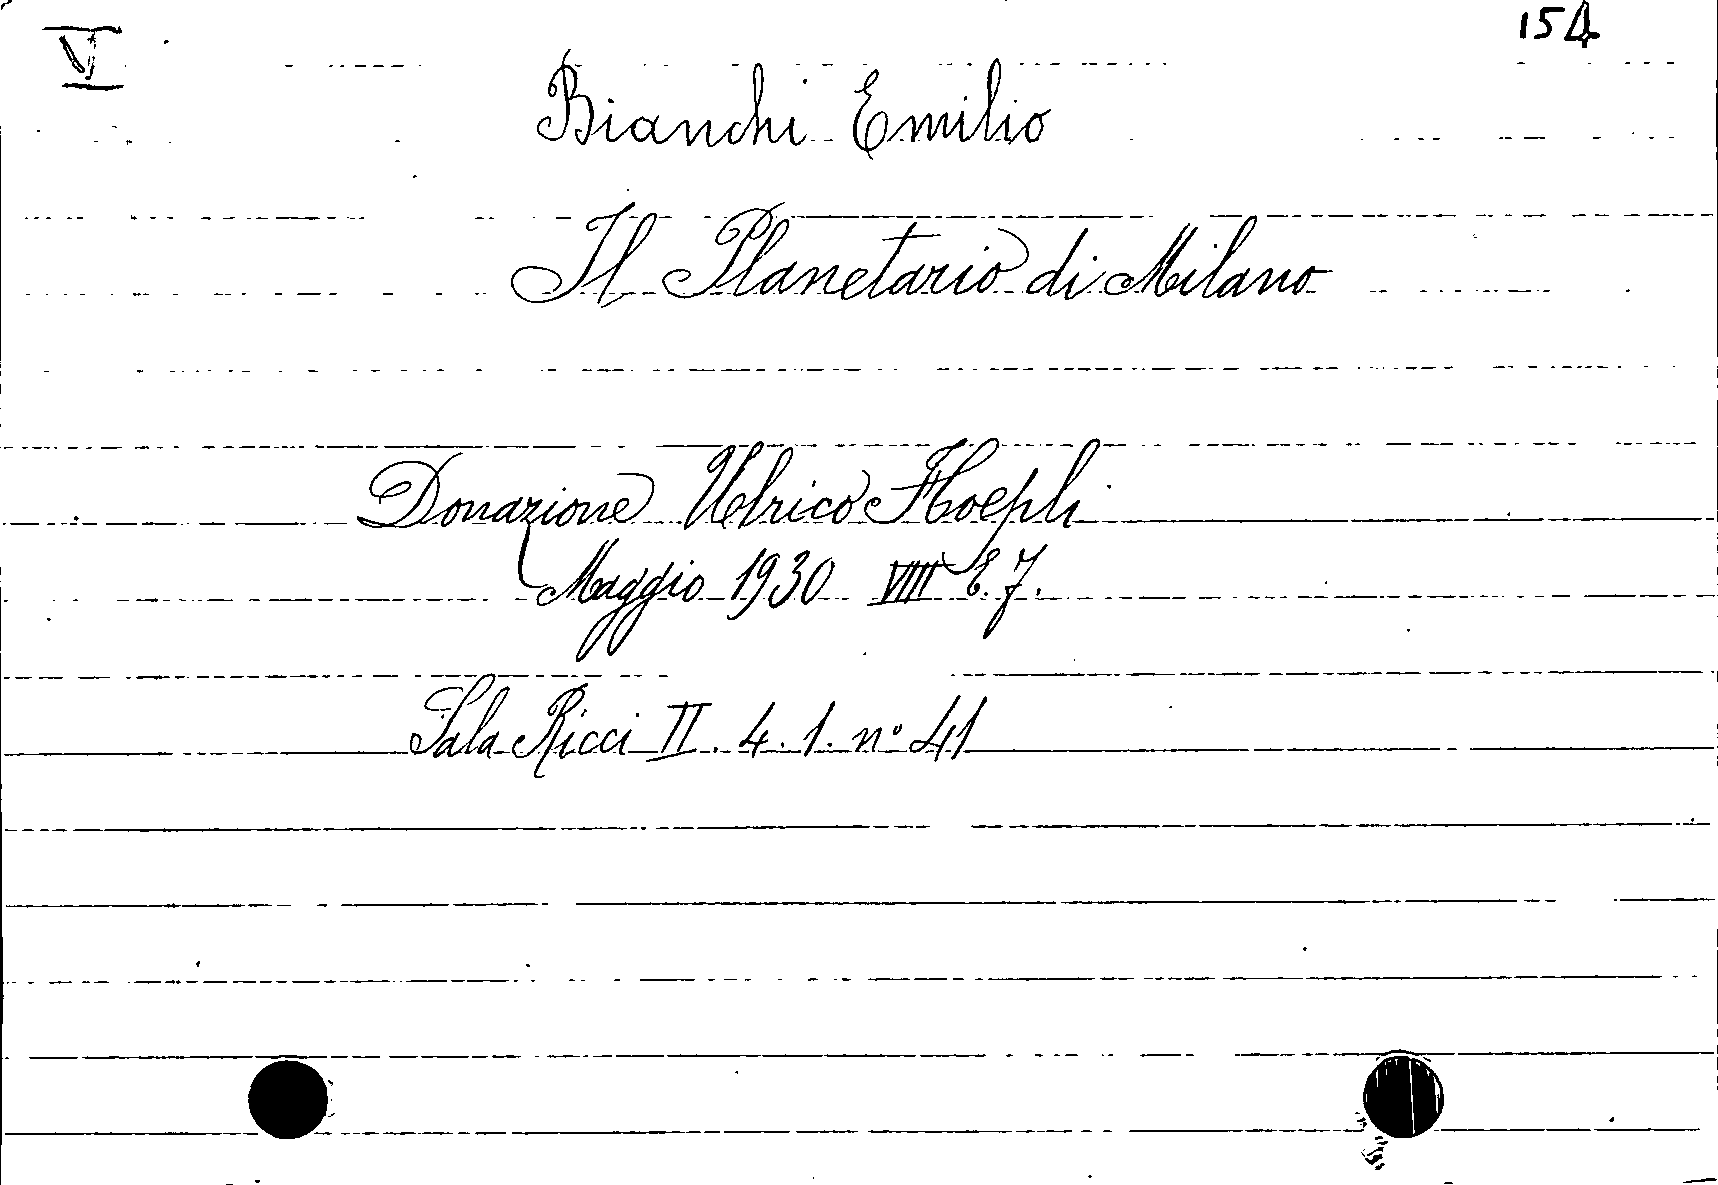 VI
154
Bianchi Emilio
Il Planetario di Milano
Donazione Ulrico Hoepli
Maggio 1930 VIII E. F.
Sala Ricci II. 4. 1. n° 41